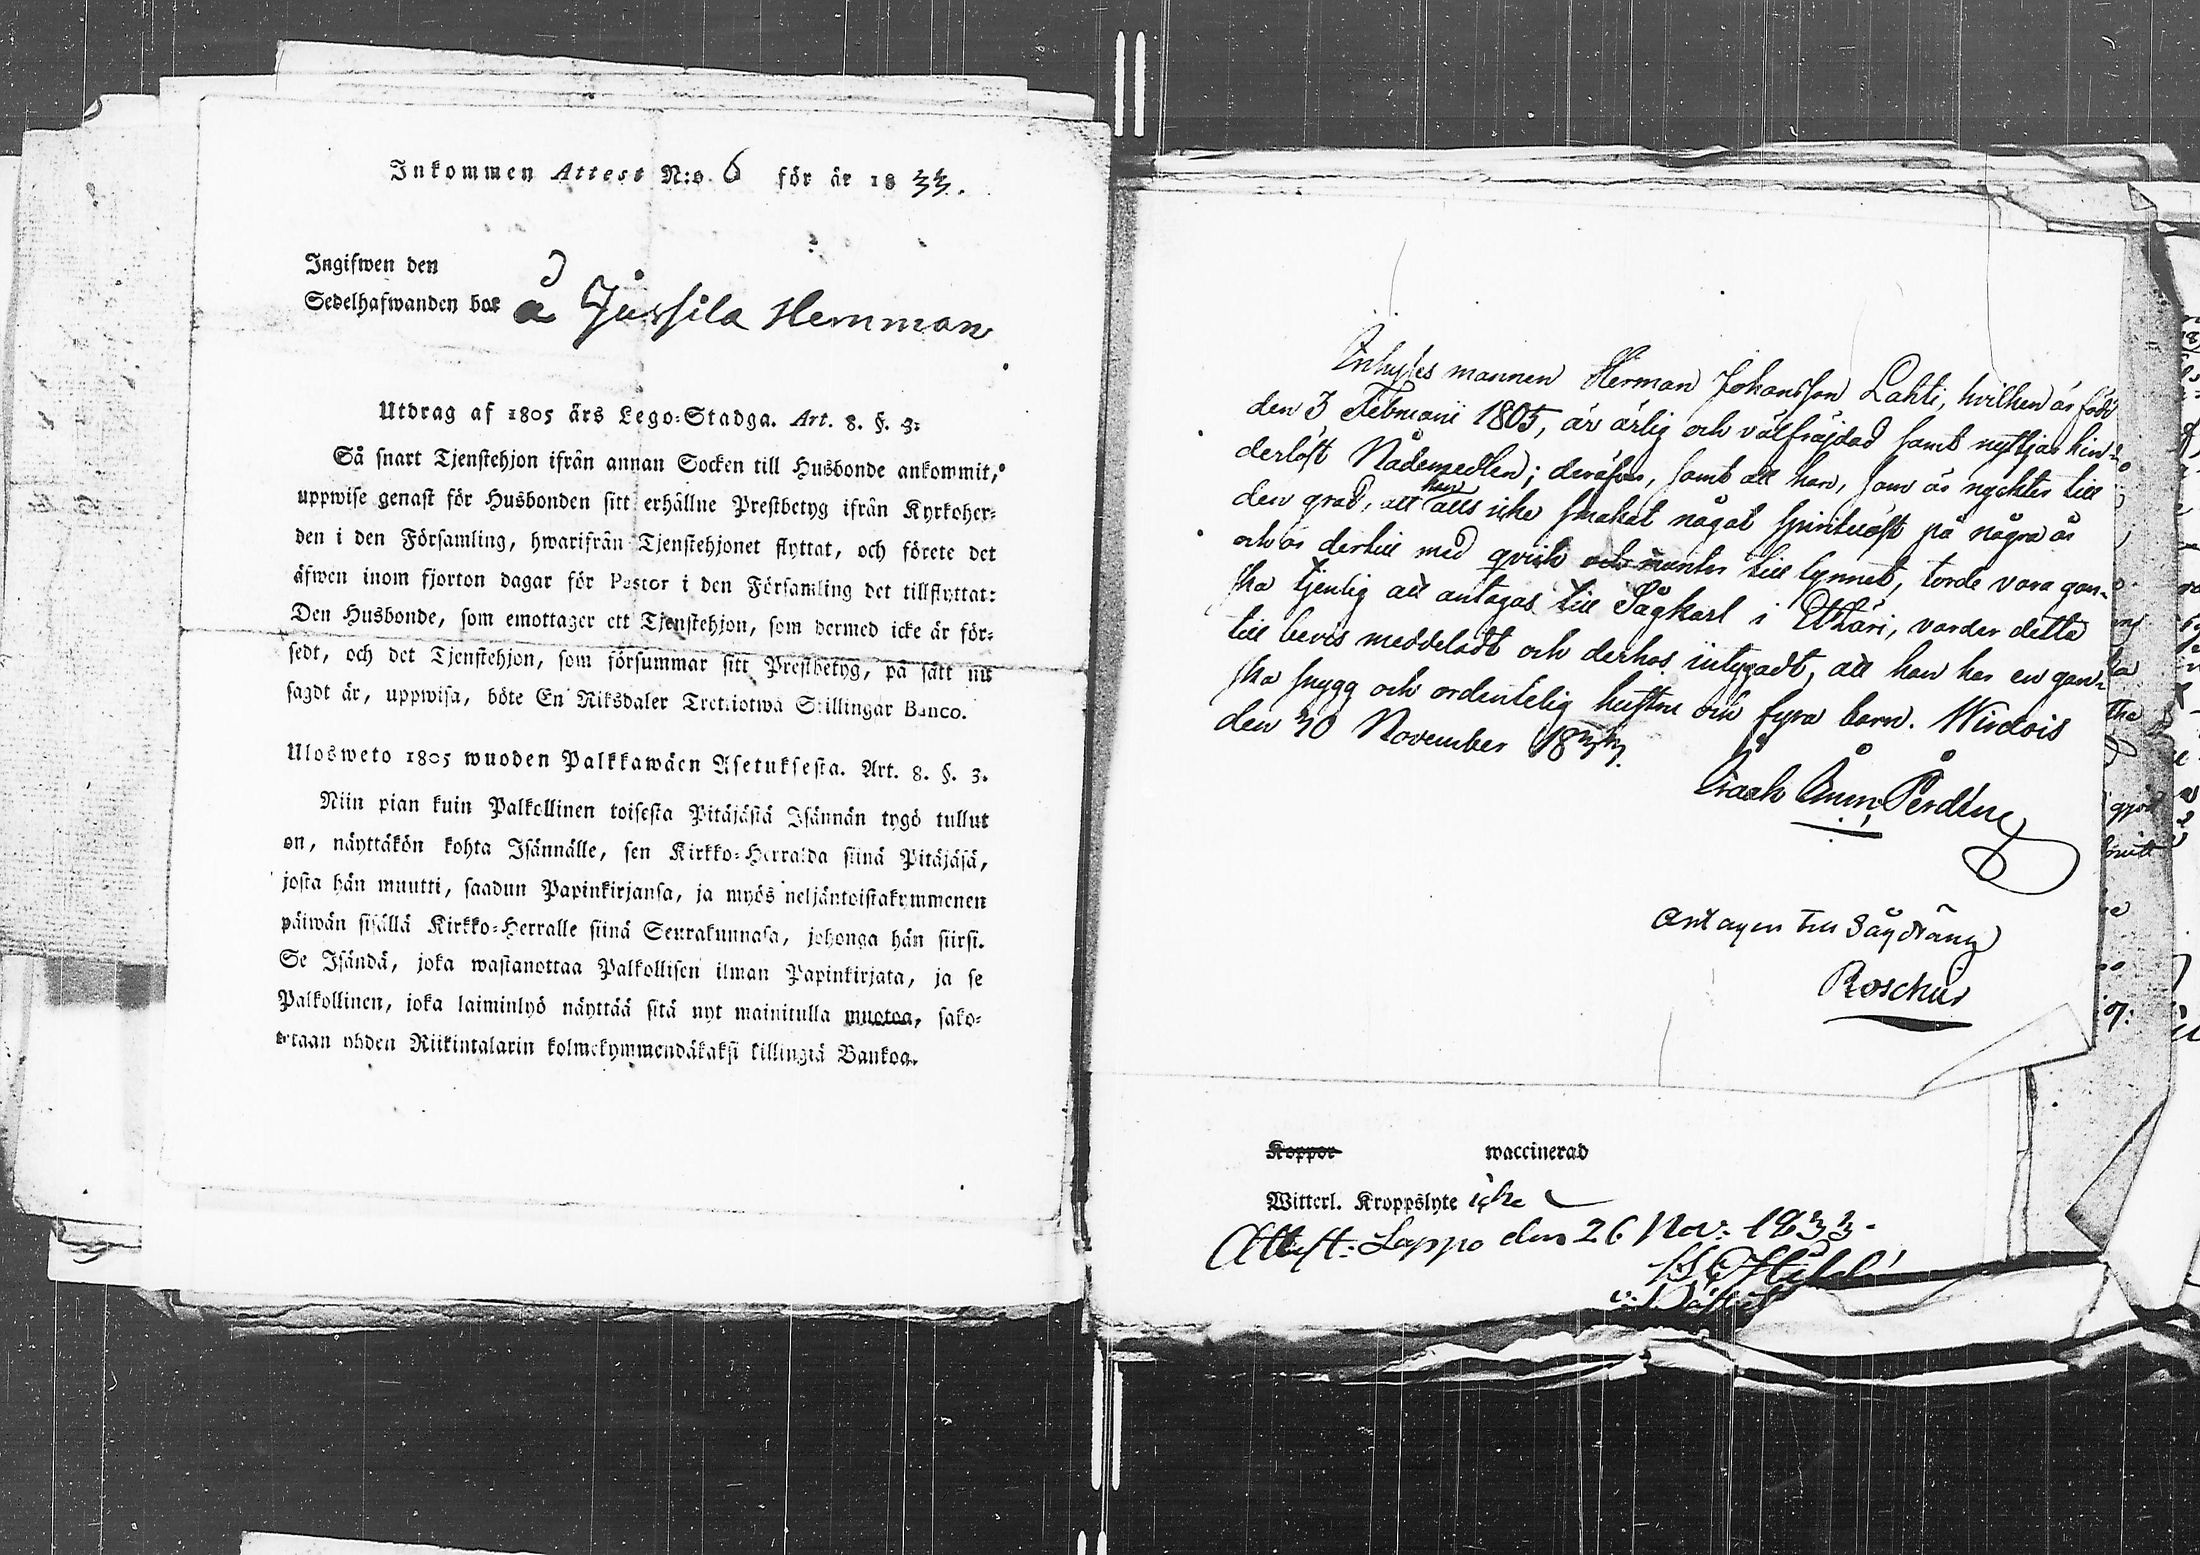 Inkommen Attest N:o 6 för år 1833.
Ingifwen den
Sedelhafwanden bor å Jussila Hemman
Utdrag af 1805 års Lego-Stadga. Art. 8. §. 3:
Så snart Tjenstehjon ifrån annan Socken till Husbonde ankommit,
uppwise genast för Husbonden sitt erhållne Prestbetyg ifrån Kyrkoher-
den i den Församling, hwarifrån Tjenstehjonet flyttat, och förete det
äfwen inom fjorton dagar för Pastor i den Församling det tillflyttat:
Den Husbonde, som emottager ett Tjenstehjon, som dermed icke är för-
sedt, och det Tjenstehjon, som försummar sitt Prestbetyg, på sätt nu
sagdt är, uppwisa, böte En Riksdaler Trettiotwå Skillingar Banco.
Ulosweto 1805 wuoden Palkkawäen Asetuksesta. Art. 8. §. 3.
Niin pian kuin Palkollinen toisesta Pitäjästä Isännän tygö tullut
on, näyttäkön kohta Isännälle, sen Kirkko-Herralda siinä Pitäjäsä,
josta hän muutti, saadun Papinkirjansa, ja myös neljäntoistakymmenen
päiwän sisällä Kirkko-Herralle siinä Seurakunnasa, johonga hän siirsi.
Se Isändä, joka wastanottaa Palkollisen ilman Papinkirjata, ja se
Palkollinen, joka laiminlyö näyttää sitä nyt mainitulla muotoa, sako-
tetaan yhden Riikintalarin kolmekymmendäkaksi killingiä Bankoa.
Inhyses mannen Herman Johansson Lahti, hvilken är född
den 3 Februarii 1805, är ärlig och välfräjdad samt nyttjar hin-
derlöst Nådemedlen; derföre, samt att han, som är nyckter till
den grad, att han alls icke smakat något spirituöst på några år
och är dertill med qvick och munter till lynnet, torde vara gan-
ska tjenlig att antagas till Sågkarl i Etthäri, varder detta
till bevis meddeladt och derhos intygadt, att han har en gan-
ska snygg och ordentelig hustru och fyra barn. Wirdois
den 30 November 1833.
Antagen till Sågdräng
Roschier
Koppor waccinerad
Witterl. Kroppslyte icke
Attest: Lappo den 26 Nov: 1833.